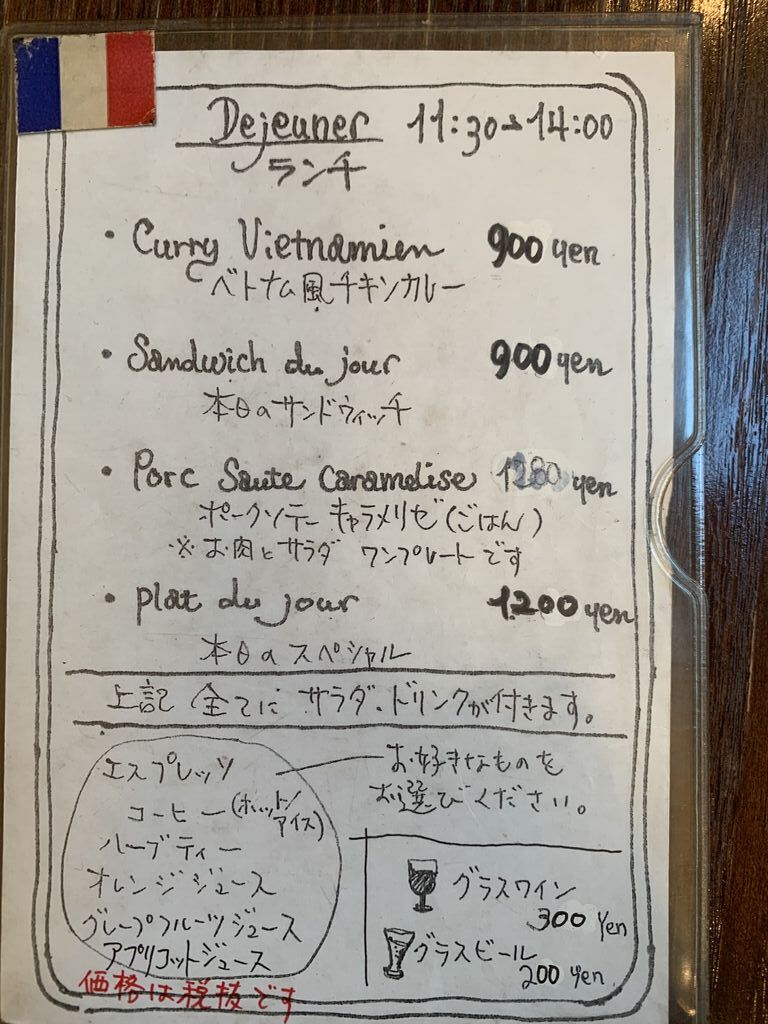 Dejeuner 11:30~14:00
ランチ
・Curry Vietnamien 900 yen
ベトナム風チキンカレー
・Sandwich du jour 900 yen
本日のサンドウィッチ
・Porc Saute Caramelise 1280 yen
ポークソテー キャラメリゼ(ごはん)
※お肉とサラダ ワンプレートです
・plat du jour 1200 yen
本日のスペシャル
上記 全てに サラダ、ドリンクが付きます。
エスプレッソ
コーヒー(ホット/アイス)
ハーブティー
オレンジジュース
グレープフルーツジュース
アプリコットジュース
お好きなものを
お選びください。
グラスワイン
300 Yen
グラスビール
200 yen
価格は税抜です